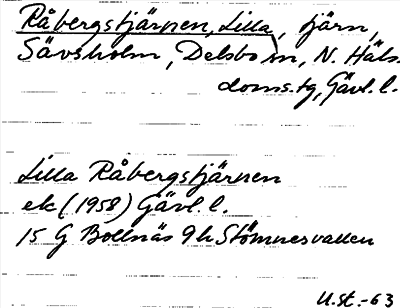 Råbergstjärnen, Lilla, tjärn,
Sävsholm, Delsbo sn, N. Häls.
doms.tg, Gävl. l.
Lilla Råbergstjärnen
ek (1958) Gävl. l.
15 G Bollnäs 9h Stömnesvallen
U.st.-63